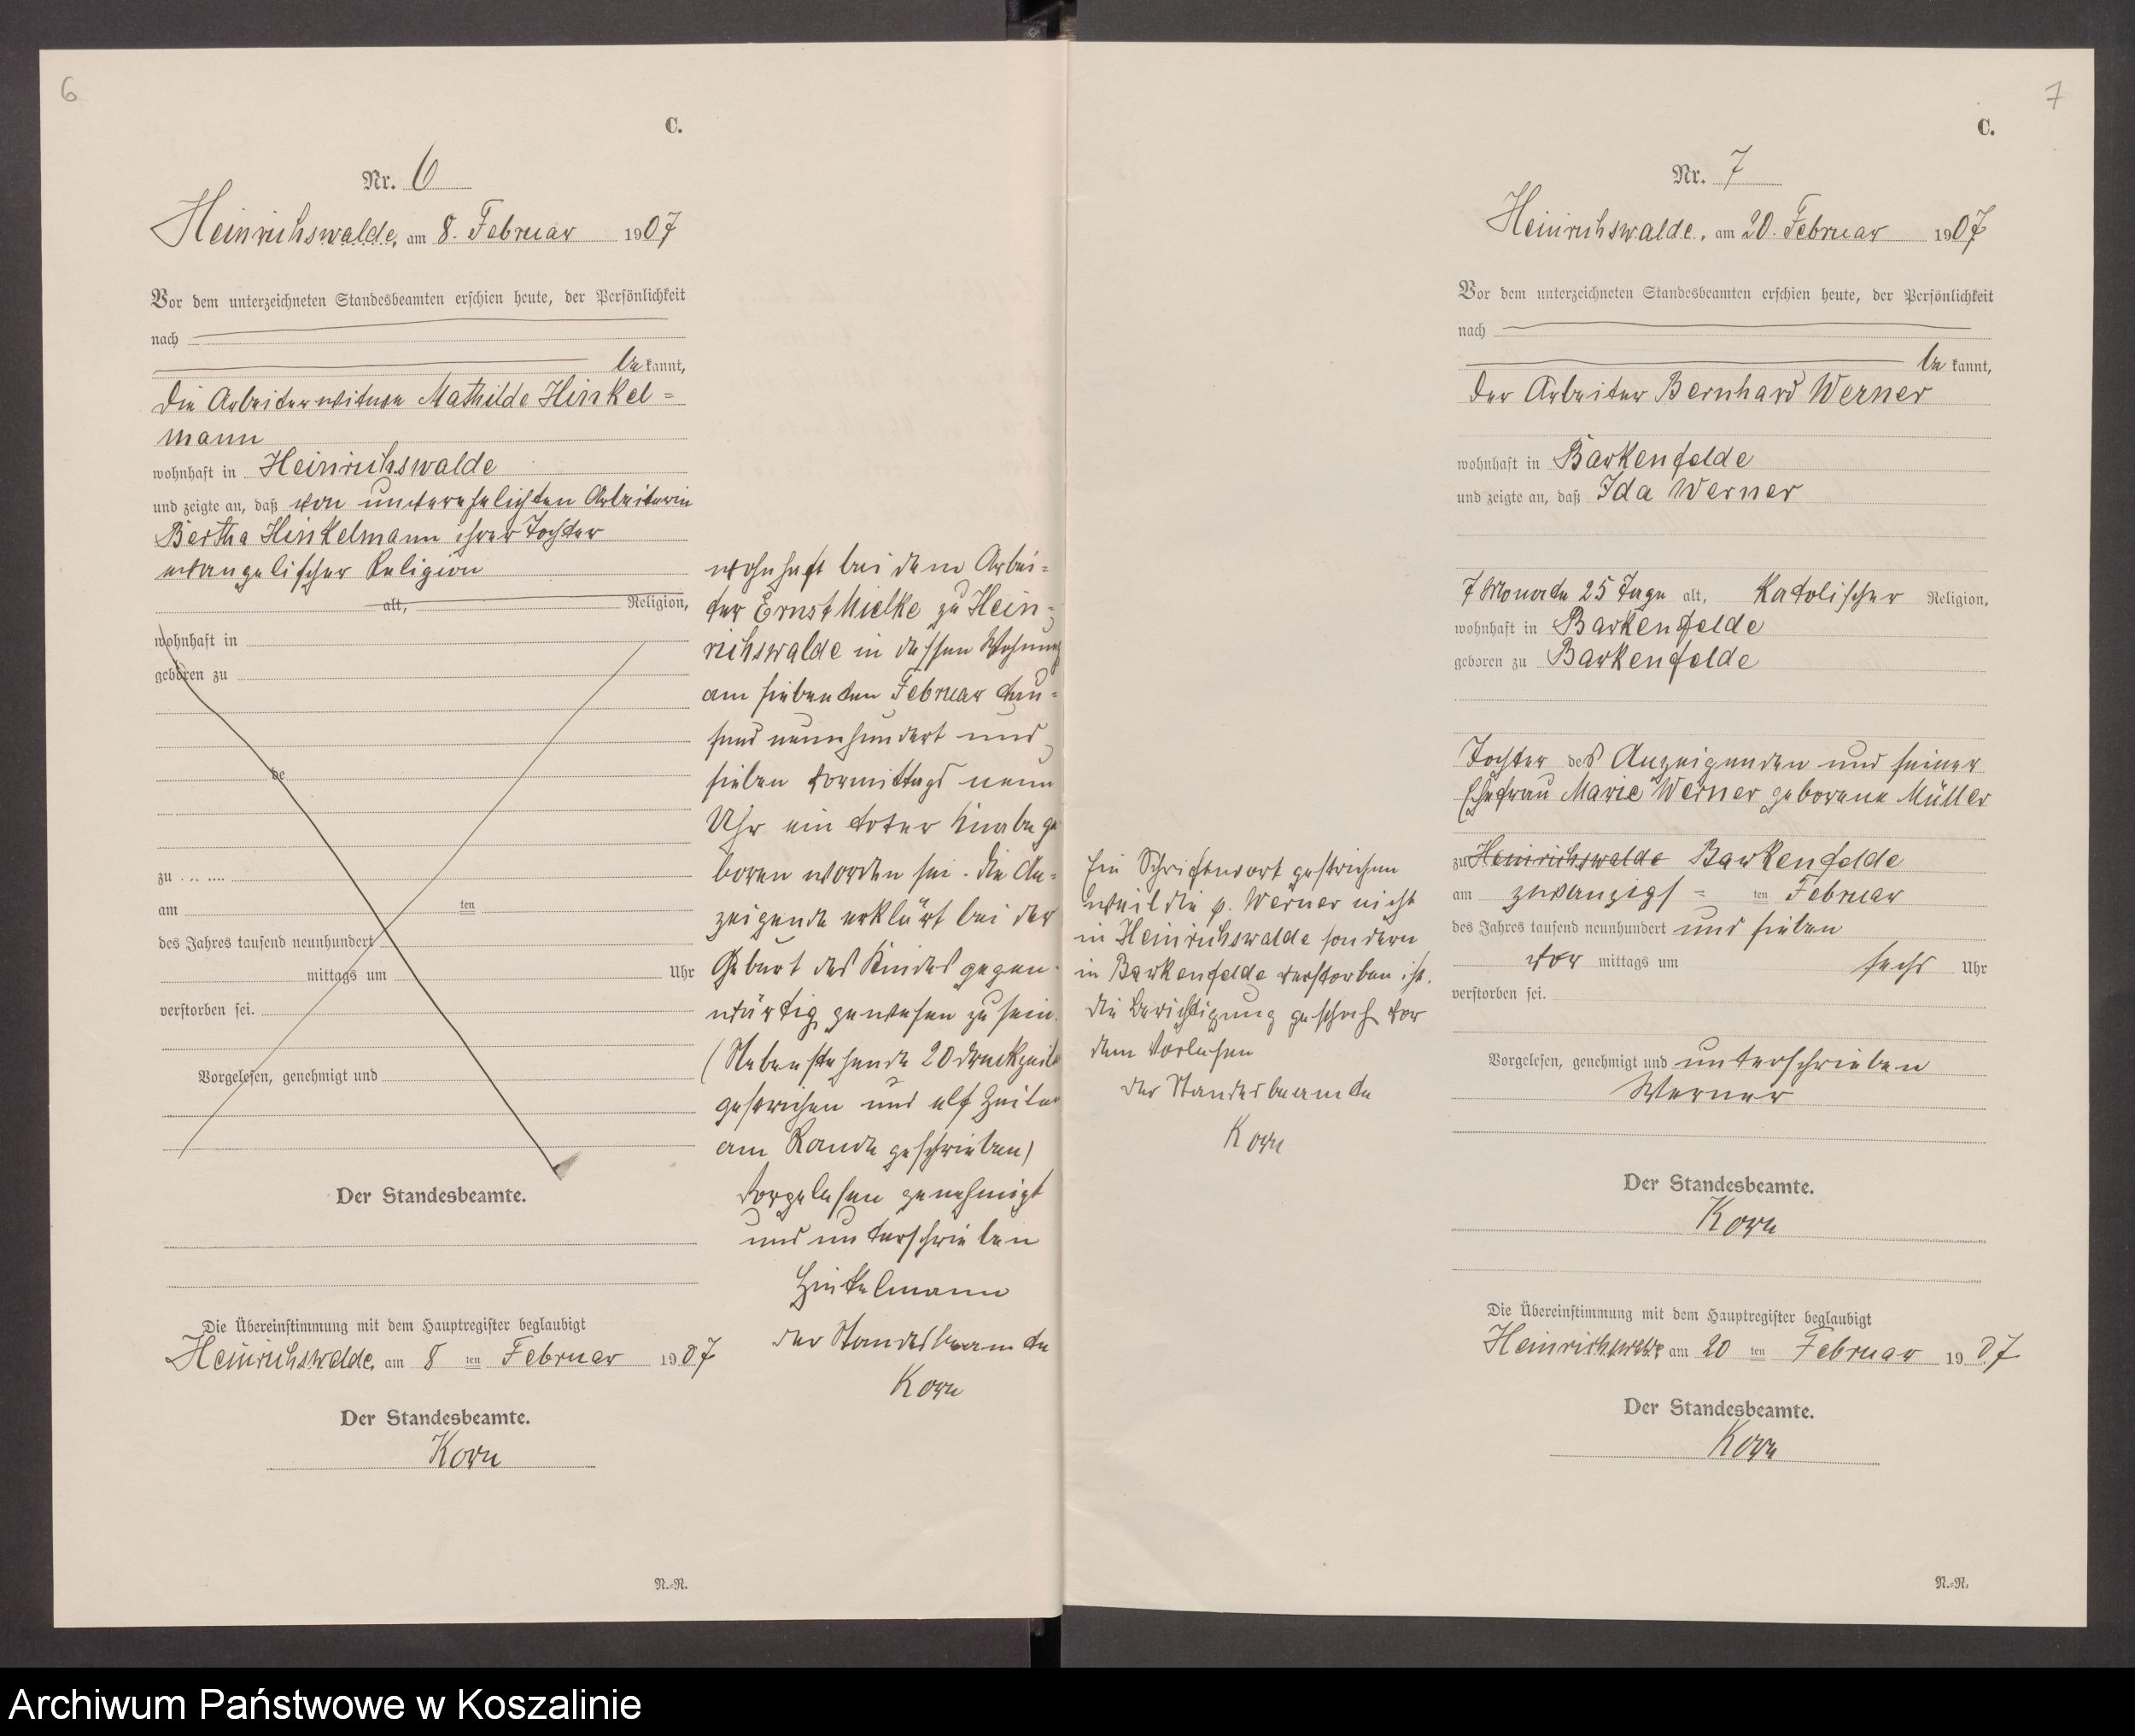 6
C.
Nr. 6
Heinrichswalde, am 8. Februar 1907
Vor dem unterzeichneten Standesbeamten erschien heute, der Persönlichkeit
nach
be kannt,
die Arbeiterwitwe Mathilde Hinkel=
mann
wohnhaft in Heinrichswalde
und zeigte an, daß von unverehelichten Arbeiterin
Bertha Hinkelmann ihrer Tochter
evangelischer Religion
alt, Religion,
wohnhaft in
geboren zu
de
zu
am ten
des Jahres tausend neunhundert
mittags um Uhr
verstorben sei.
Vorgelesen, genehmigt und
Der Standesbeamte.
Die Übereinstimmung mit dem Hauptregister beglaubigt
Heinrichswalde, am 8 ten Februar 1907
Der Standesbeamte.
Korn
N.=R.
wohnhaft bei dem Arbei=
ter Ernst Mielke zu Hein=
richswalde in dessen Wohnung
am siebenten Februar tau=
send neunhundert und
sieben vormittags neun
Uhr ein toter Knabe ge
boren worden sei. Die An=
zeigende erklärt bei der
Geburt des Kindes gegen=
wärtig gewesen zu sein.
(Nebenstehende 20 Druckzeile
gestrichen und elf Zeilen
am Rande geschrieben)
Vorgelesen genehmigt
und unterschrieben
Hinkelmann
der Standesbeamte
Korn
7
C.
Nr. 7
Heinrichswalde, am 20. Februar 1907
Vor dem unterzeichneten Standesbeamten erschien heute, der Persönlichkeit
nach
be kannt,
der Arbeiter Bernhard Werner
wohnhaft in Barkenfelde
und zeigte an, daß Ida Werner
7 Monate 25 Tage alt, Katolischer Religion,
wohnhaft in Barkenfelde
geboren zu Barkenfelde
Tochter des Anzeigenden und seiner
Ehefrau Marie Werner geborene Müller
zu Heinrichswalde Barkenfelde
am zwanzigs= ten Februar
des Jahres tausend neunhundert und sieben
vor mittags um sechs Uhr
verstorben sei.
Vorgelesen, genehmigt und unterschrieben
Werner
Der Standesbeamte.
Korn
Die Übereinstimmung mit dem Hauptregister beglaubigt
Heinrichswalde am 20 ten Februar 1907
Der Standesbeamte.
Korn
N.=R.
Ein Schriftwort gestrichen
weil die p. Werner nicht
in Heinrichswalde sondern
in Barkenfelde verstorben ist.
Die Berichtigung geschah vor
dem Vorlesen
der Standesbeamte
Korn
Archiwum Państwowe w Koszalinie